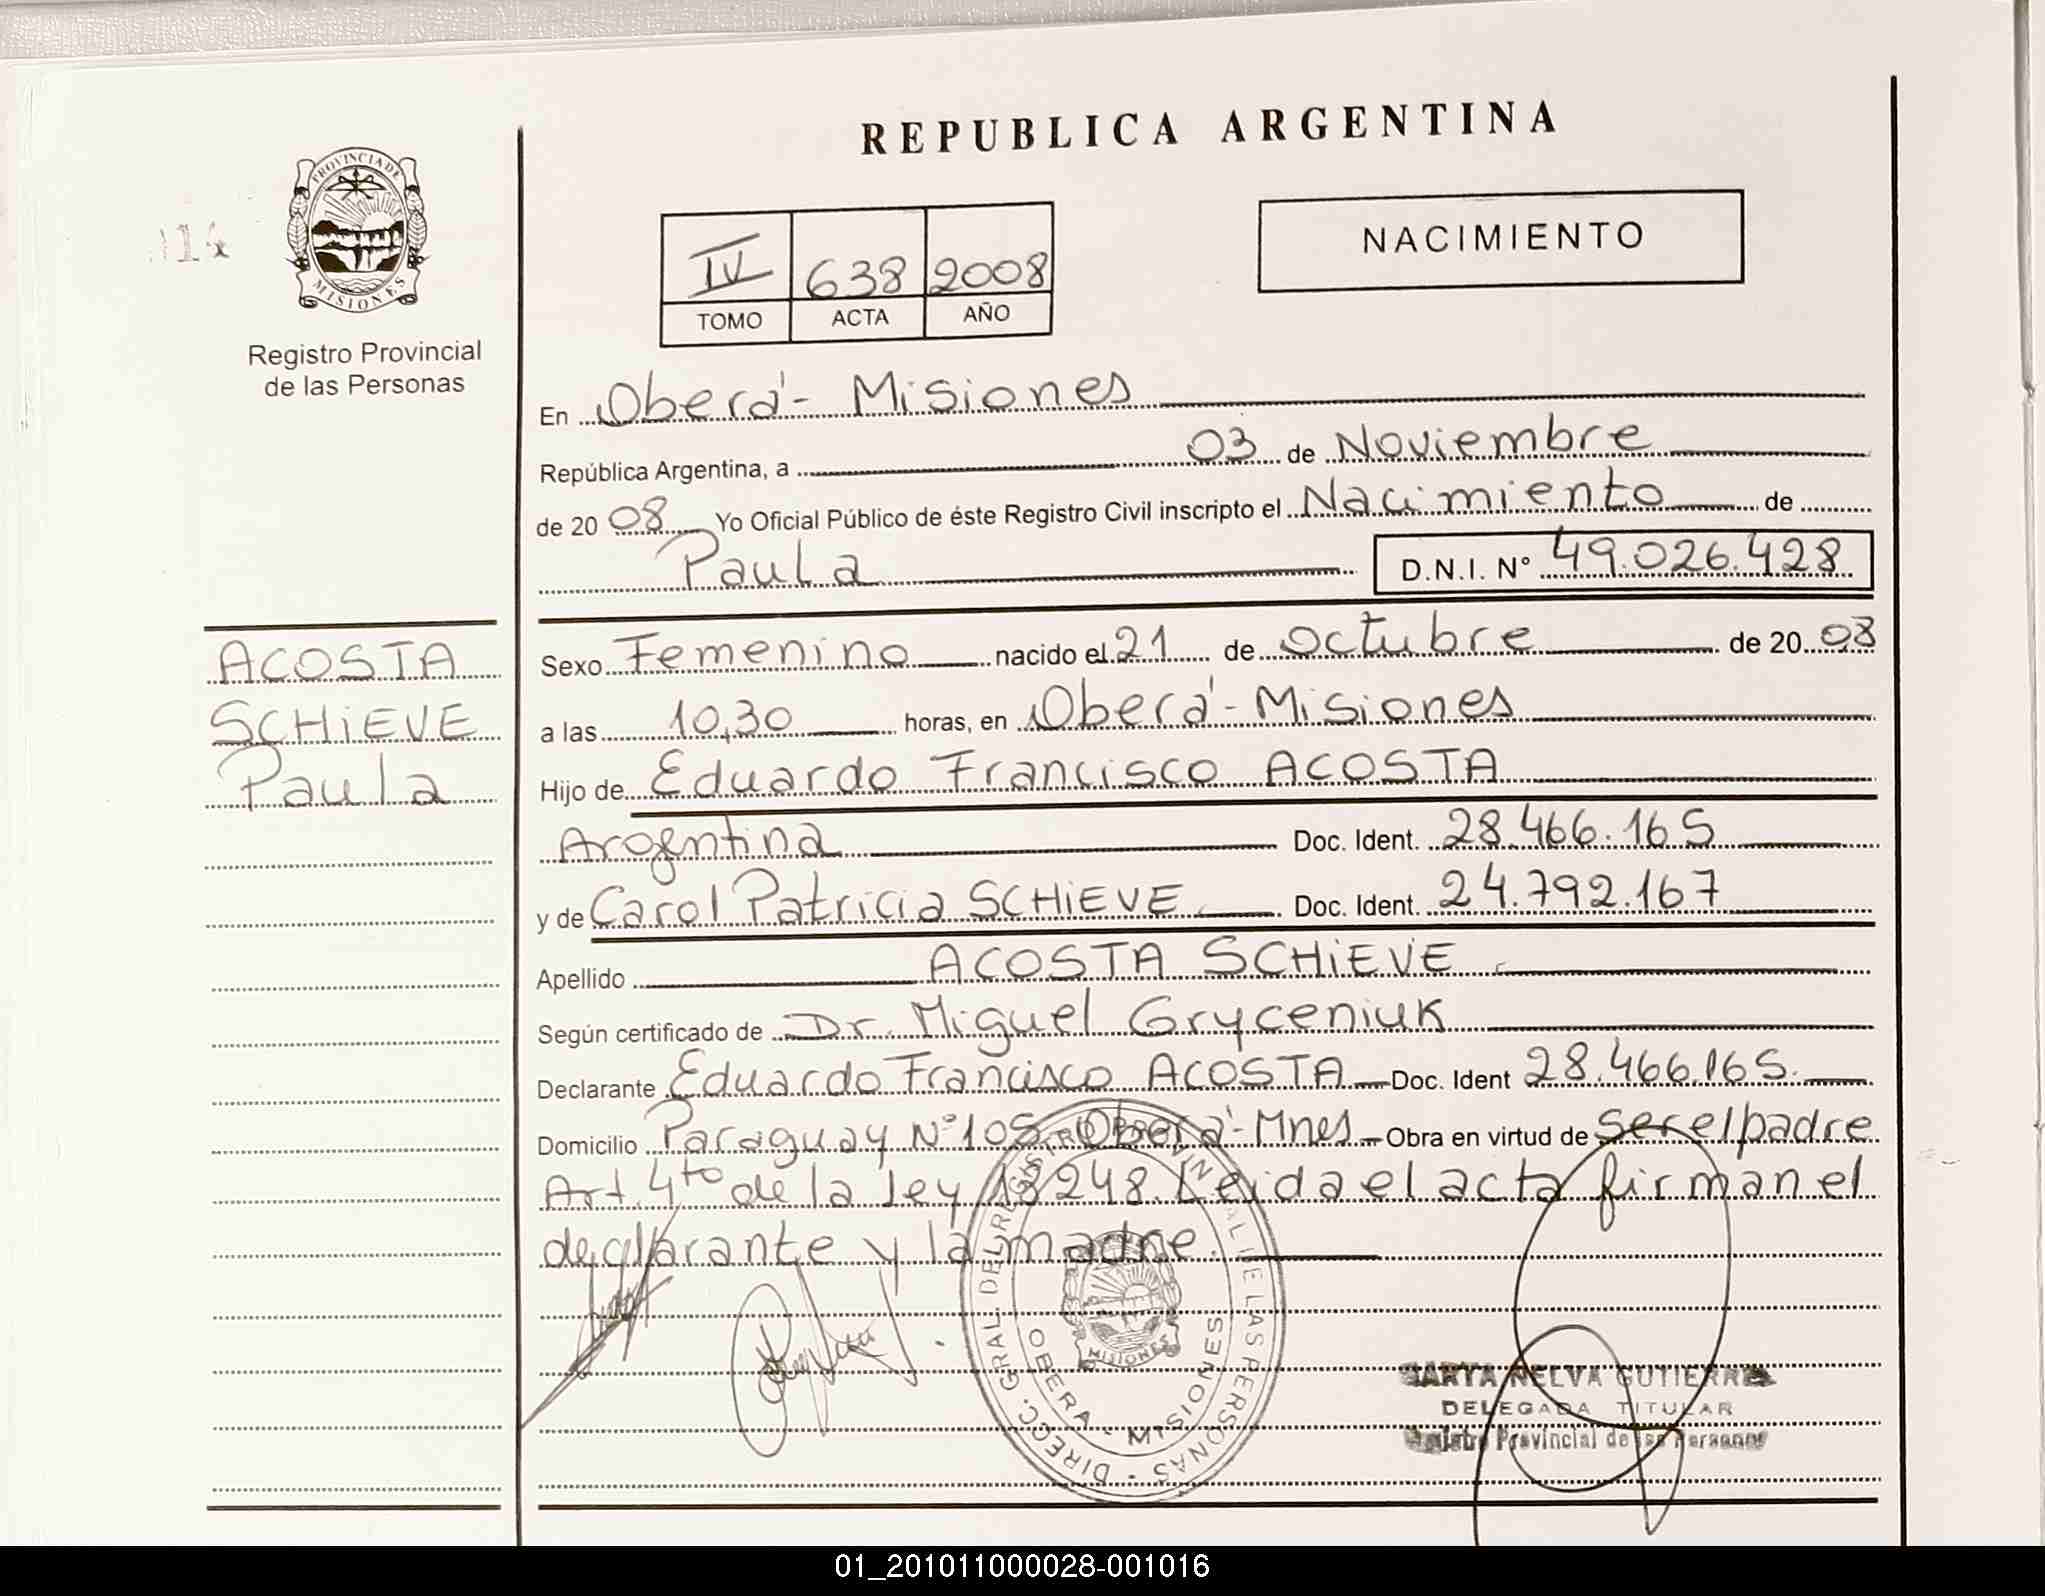 REPUBLICA ARGENTINA
PROVINCIA DE
MISIONES
114
Registro Provincial
de las Personas
IV 638 2008
TOMO ACTA AÑO
NACIMIENTO
En Oberá - Misiones
República Argentina, a 03 de Noviembre
de 20 08 Yo Oficial Público de éste Registro Civil inscripto el Nacimiento de
Paula D.N.I. N° 49.026.428
ACOSTA
SCHiEVE
Paula
Sexo Femenino nacido el 21 de Octubre de 20 08
a las 10,30 horas, en Oberá - Misiones
Hijo de Eduardo Francisco ACOSTA
Argentina Doc. Ident. 28.466.165
y de Carol Patricia SCHiEVE Doc. Ident. 24.792.167
Apellido ACOSTA SCHiEVE
Según certificado de Dr. Miguel Gryceniuk
Declarante Eduardo Francisco ACOSTA Doc. Ident 28.466.165.
Domicilio Paraguay N° 105 Oberá - Mnes Obra en virtud de ser el padre
Art. 4to de la ley 18248. Leida el acta firman el
declarante y la madre.
DIRECC. GRAL. DEL REGISTRO PROVINCIAL DE LAS PERSONAS
OBERA - MISIONES
MISIONES
MARTA NELVA GUTIERREZ
DELEGADA TITULAR
Registro Provincial de las Personas
01_201011000028-001016